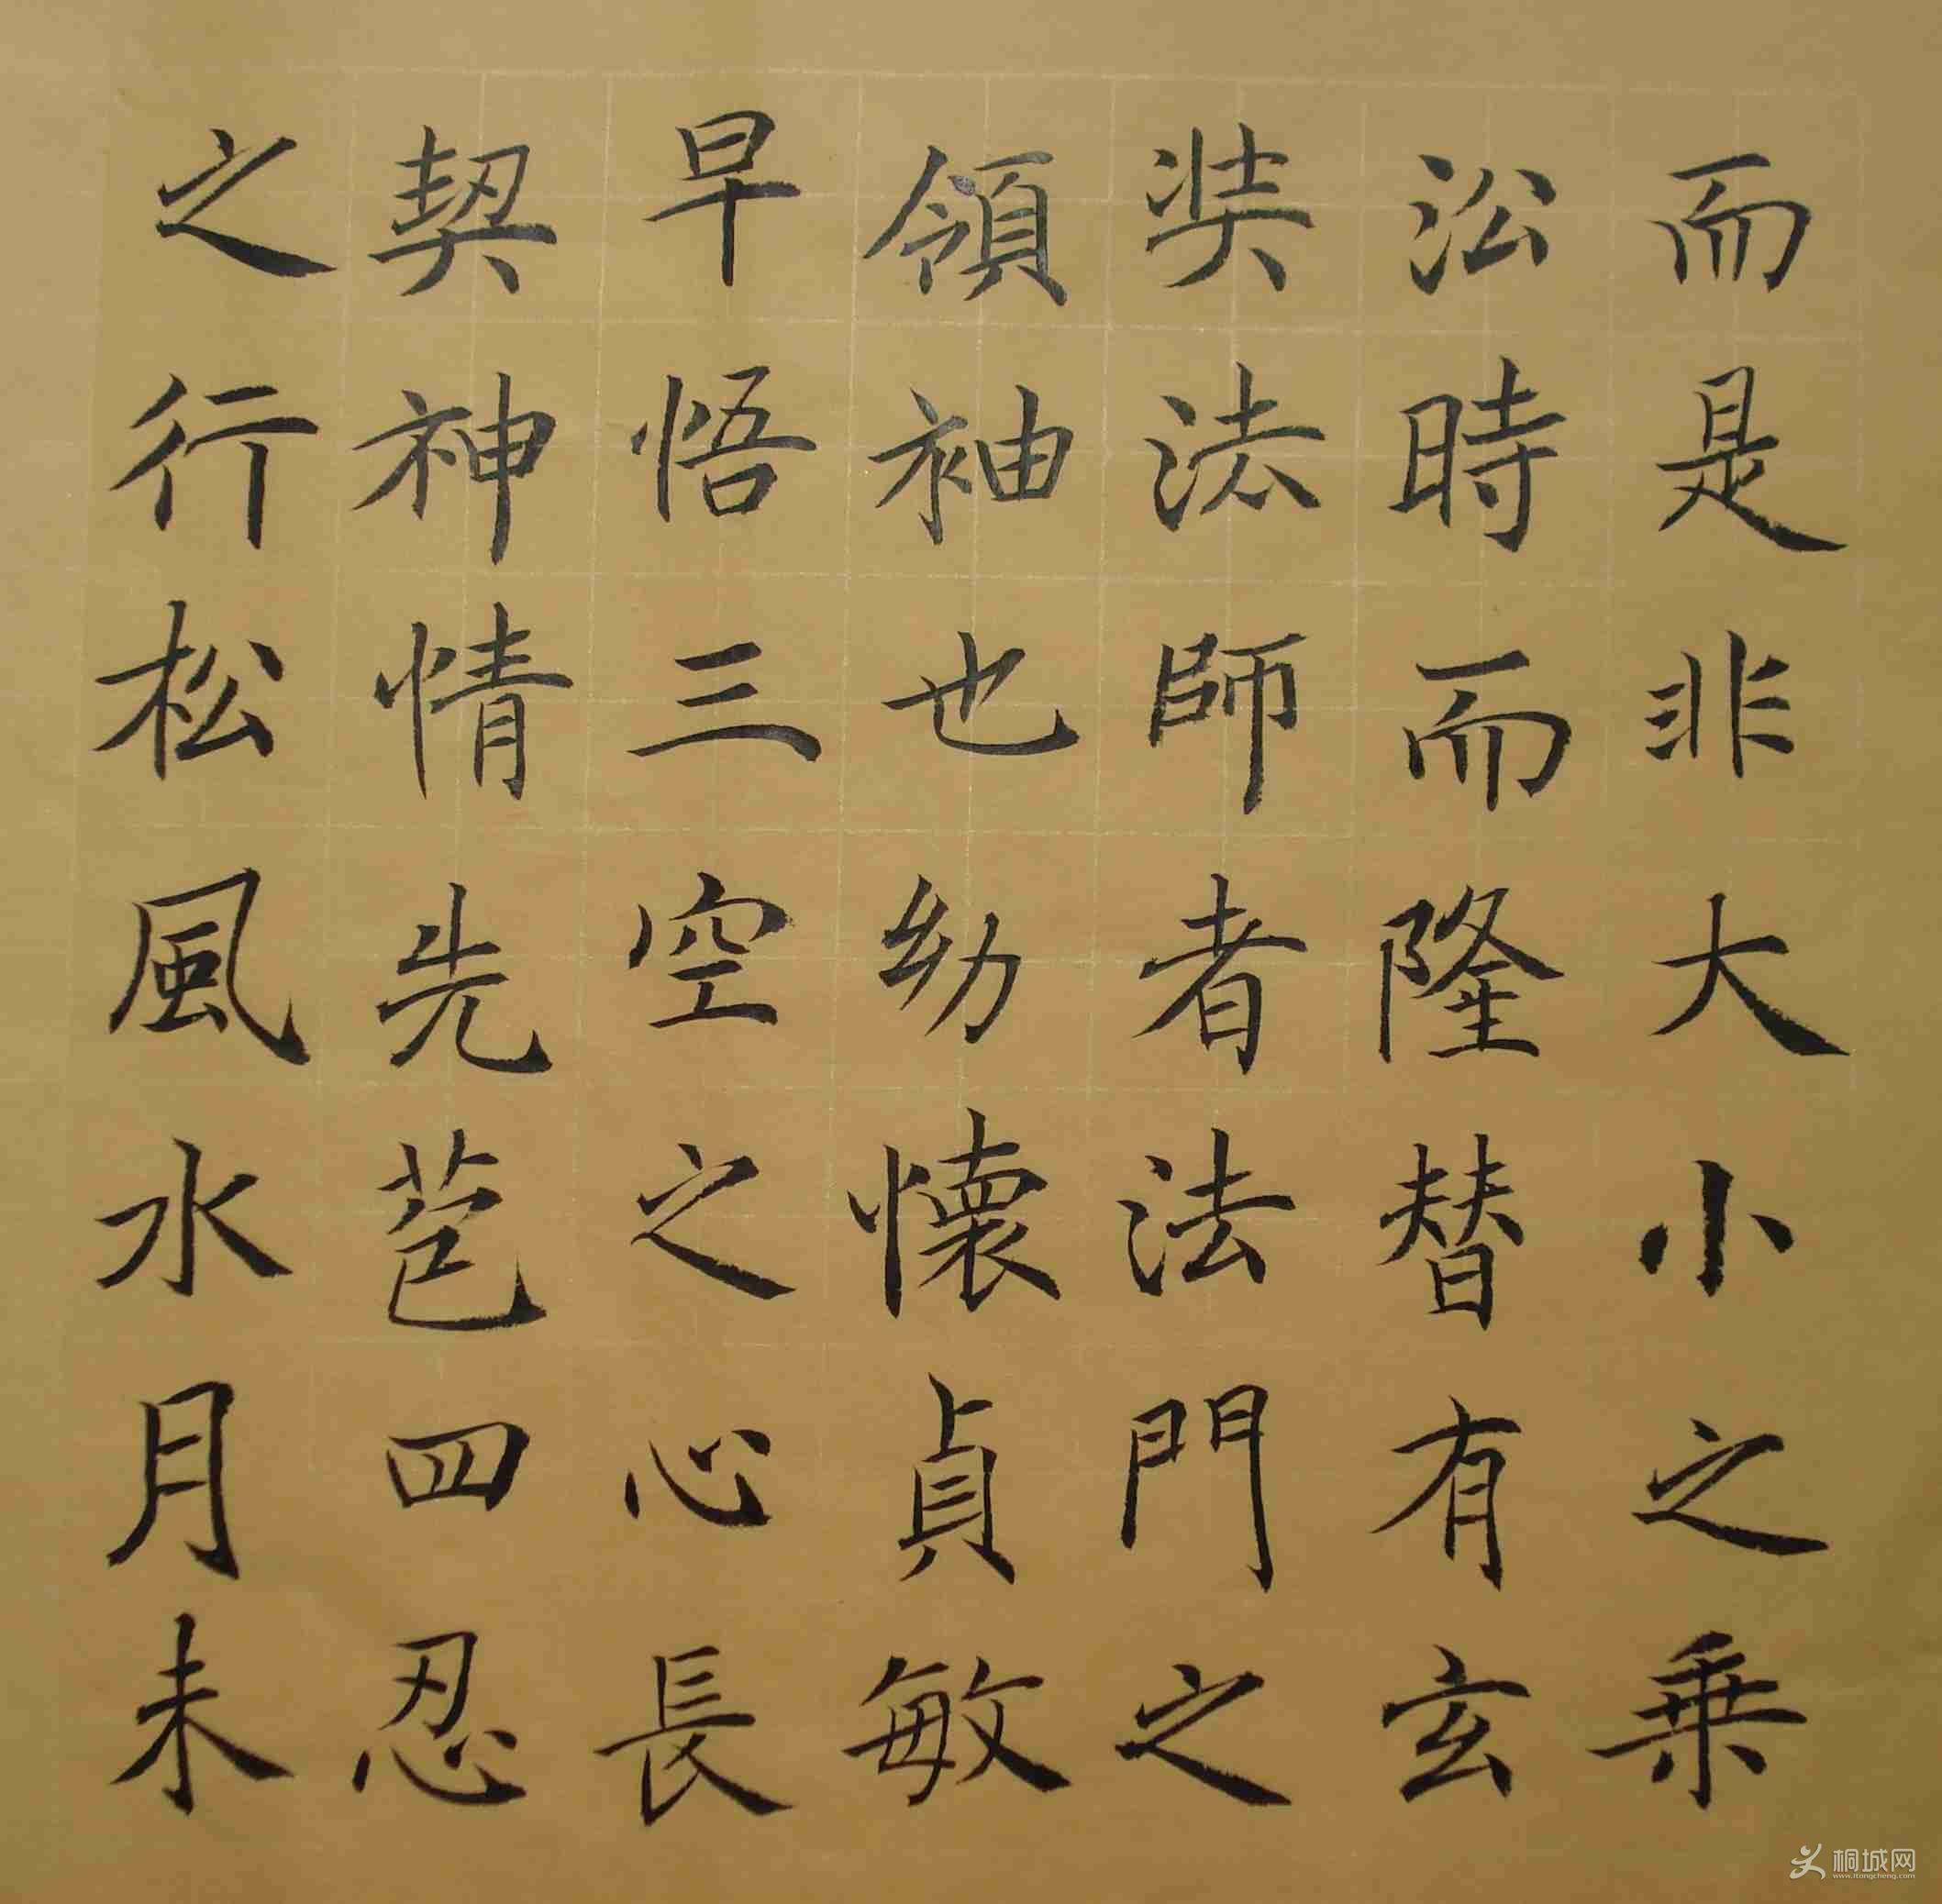 而是非大小之乗
沿時而隆替有玄
奘法師者法門之
領袖也幼懷貞敏
早悟三空之心長
契神情先苞四忍
之行松風水月未
桐城网
www.itongcheng.com